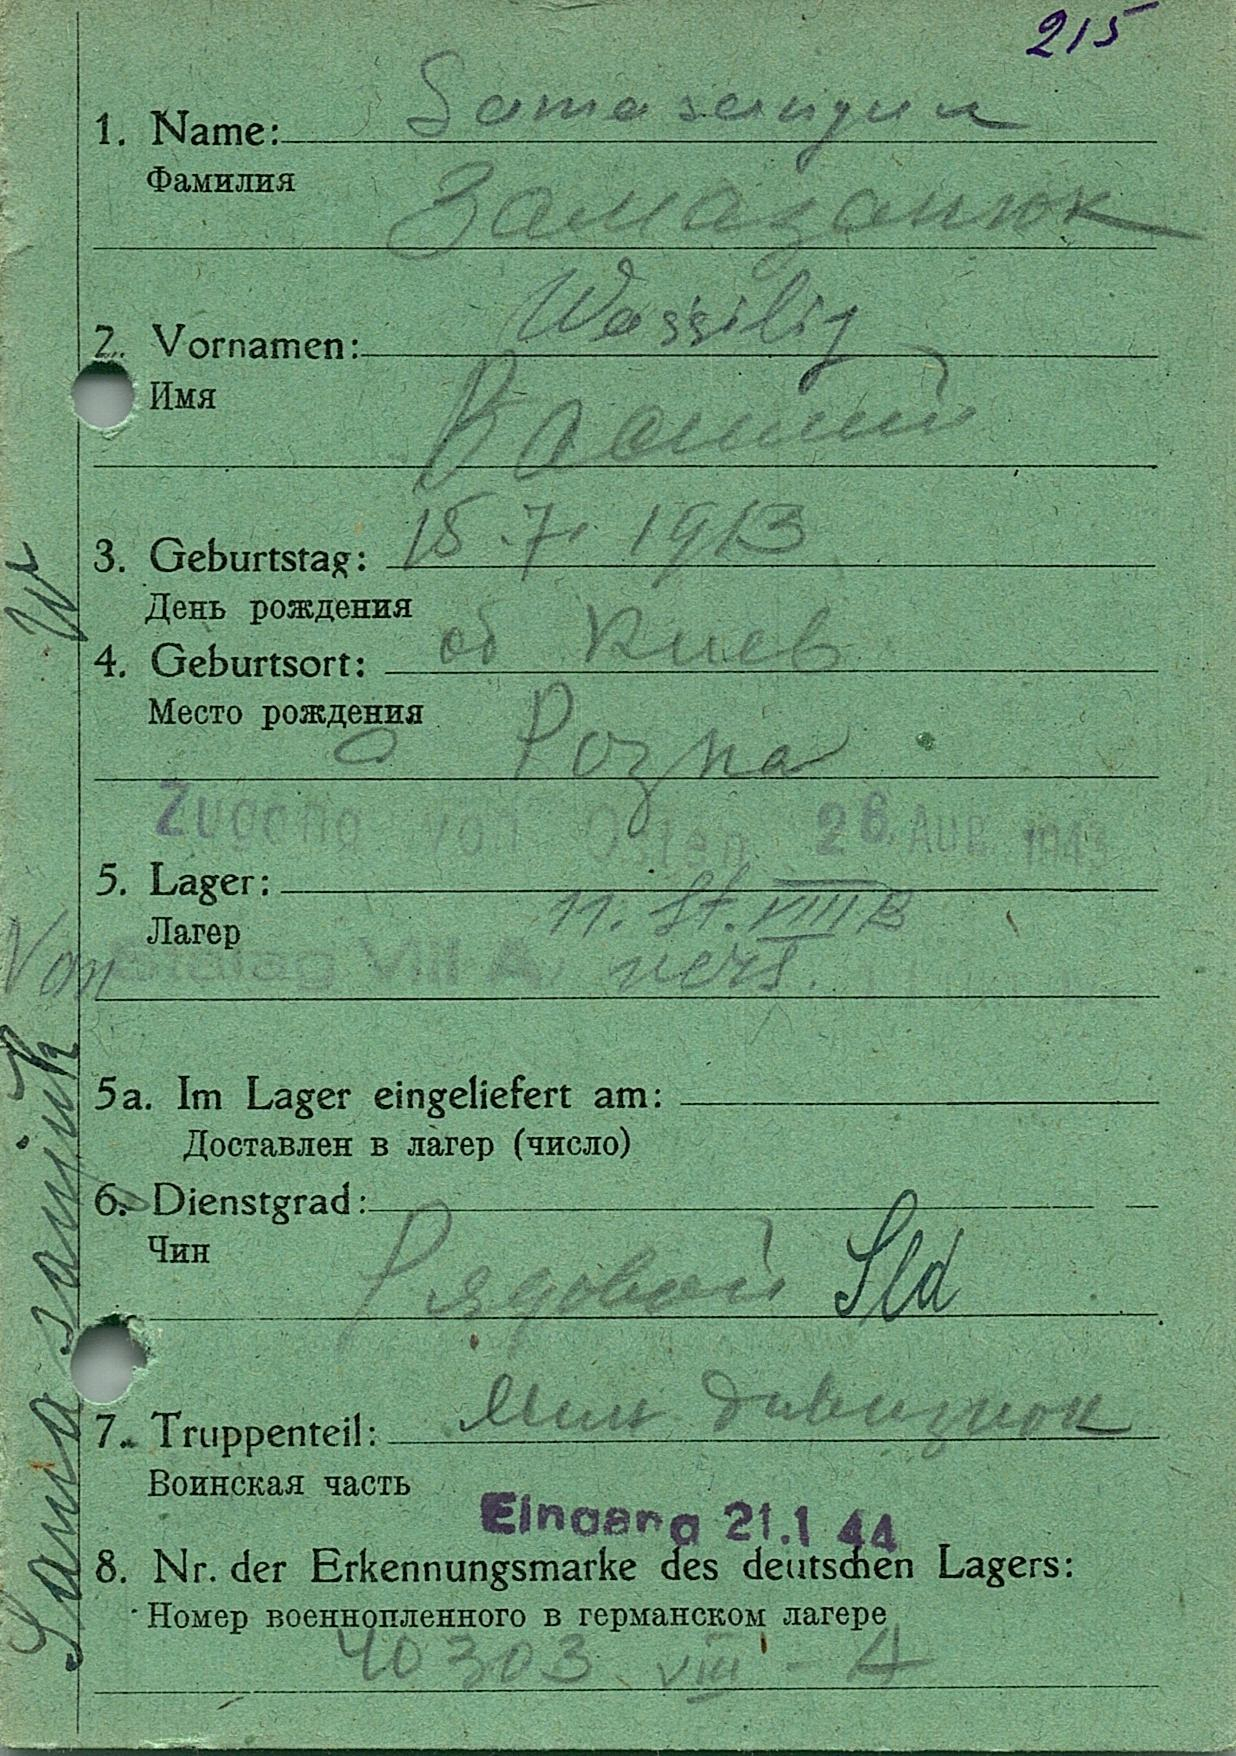 215
1. Name: Samasanyuk
Фамилия
Замазанюк
2. Vornamen: Wassilij
Имя
Василий
3. Geburtstag: 15.7. 1913
День рождения
4. Geburtsort: об Киев
Место рождения
Zugang von Osten 26. AUG. 1943
5. Lager:
Лагер
n. St. VIII B
Von Stalag VIII A vers.
5a. Im Lager eingeliefert am:
Доставлен в лагер (число)
6. Dienstgrad:
Чин
Рядовой Sld
7. Truppenteil: Мин дивизион
Воинская часть
Eingang 21.1 44
8. Nr. der Erkennungsmarke des deutschen Lagers:
Номер военнопленного в германском лагере
40303 VIII - A
Samasanjuk W